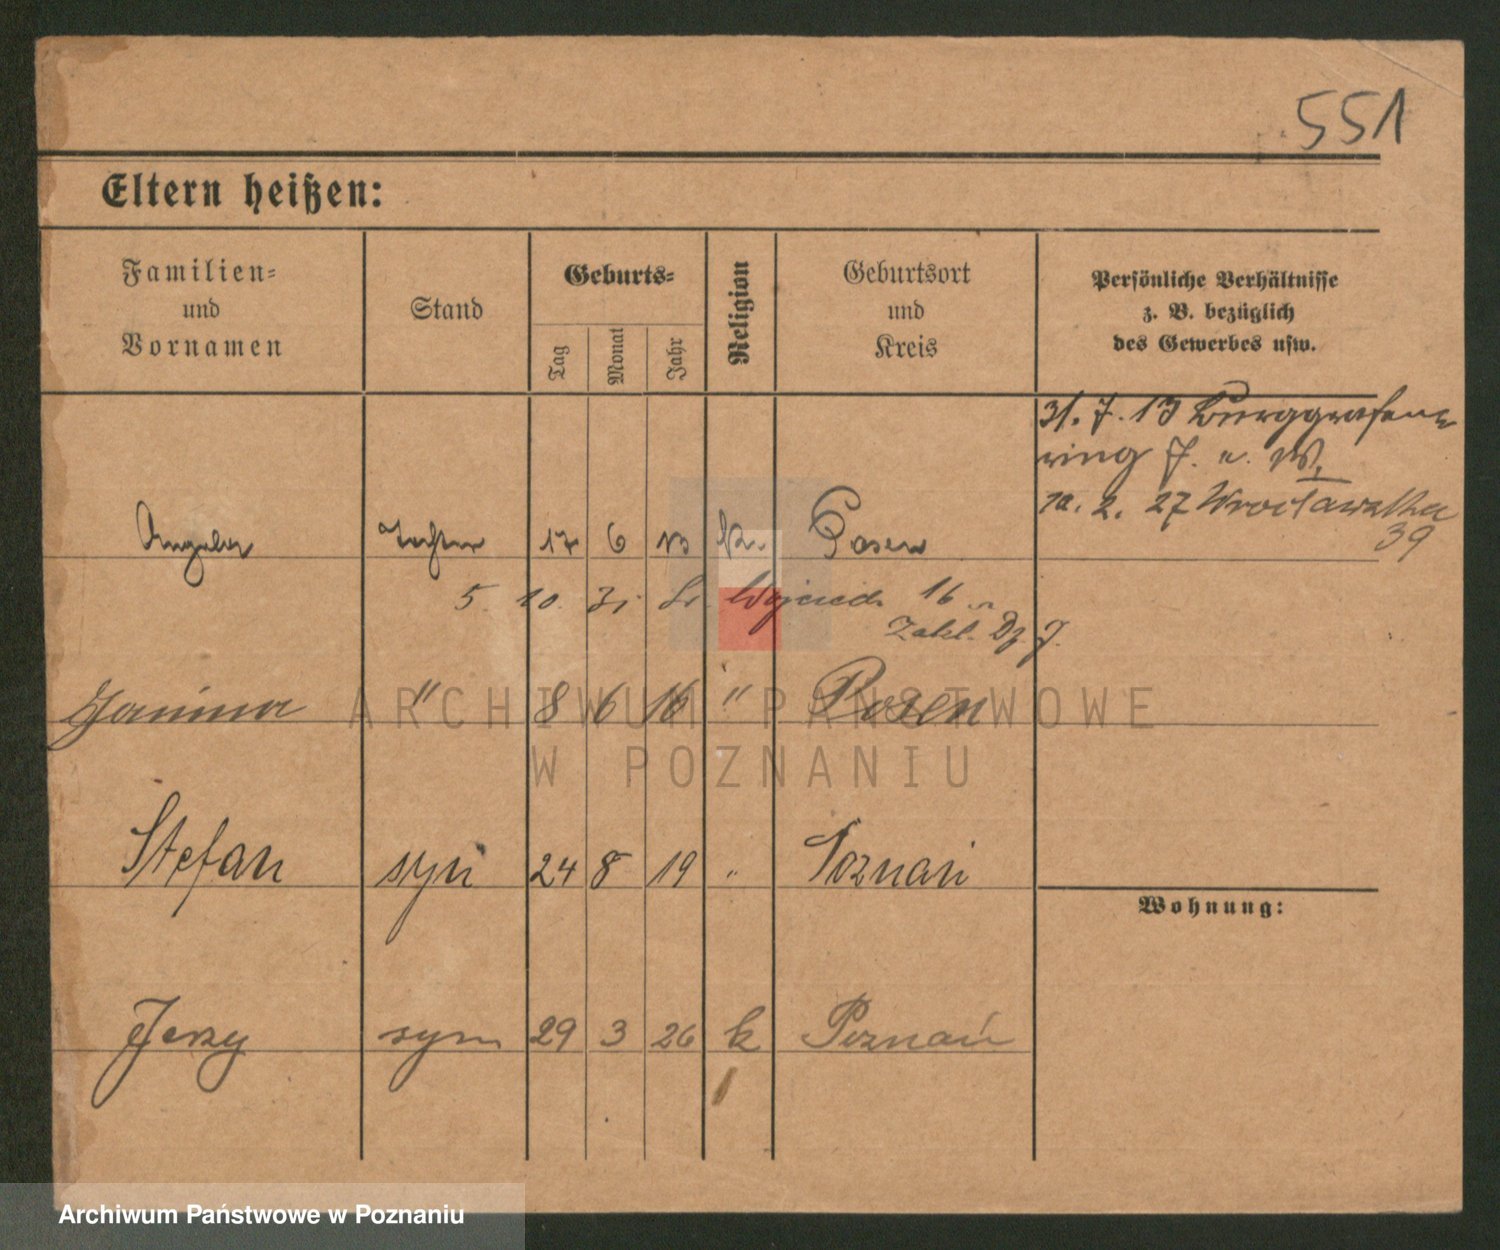 551
Eltern heißen:
Familien=
und
Vornamen
Stand
Geburts=
Tag
Monat
Jahr
Religion
Geburtsort
und
Kreis
Persönliche Verhältnisse
z. B. bezüglich
des Gewerbes usw.
31. 7. 13 Burggrafen
ring 7. u. W.
10. 2. 27 Wrocławska
39
Angela Tochter 17 6 13 K. Posen
5. 10. 31 Św. Wojciech 16
Zakł. Dz. J.
Janina " 8 6 16 " Posen
Stefan syn 24 8 19 " Poznań
Wohnung:
Jerzy syn 29 3 26 k Poznań
ARCHIWUM PAŃSTWOWE
W POZNANIU
Archiwum Państwowe w Poznaniu